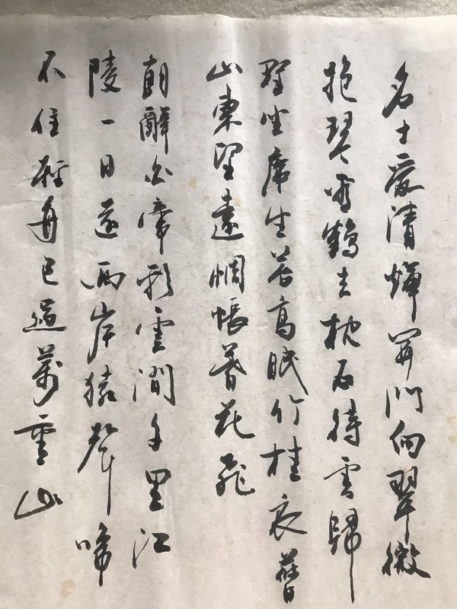 名士愛清煇開門向翠微
抱琴看鶴去枕石待雲歸
野坐席生苔高眠竹挂衣舊
山東望遠惆悵暮花飛
朝辭白帝彩雲間千里江
陵一日還兩岸猿聲啼
不住輕舟已過萬重山